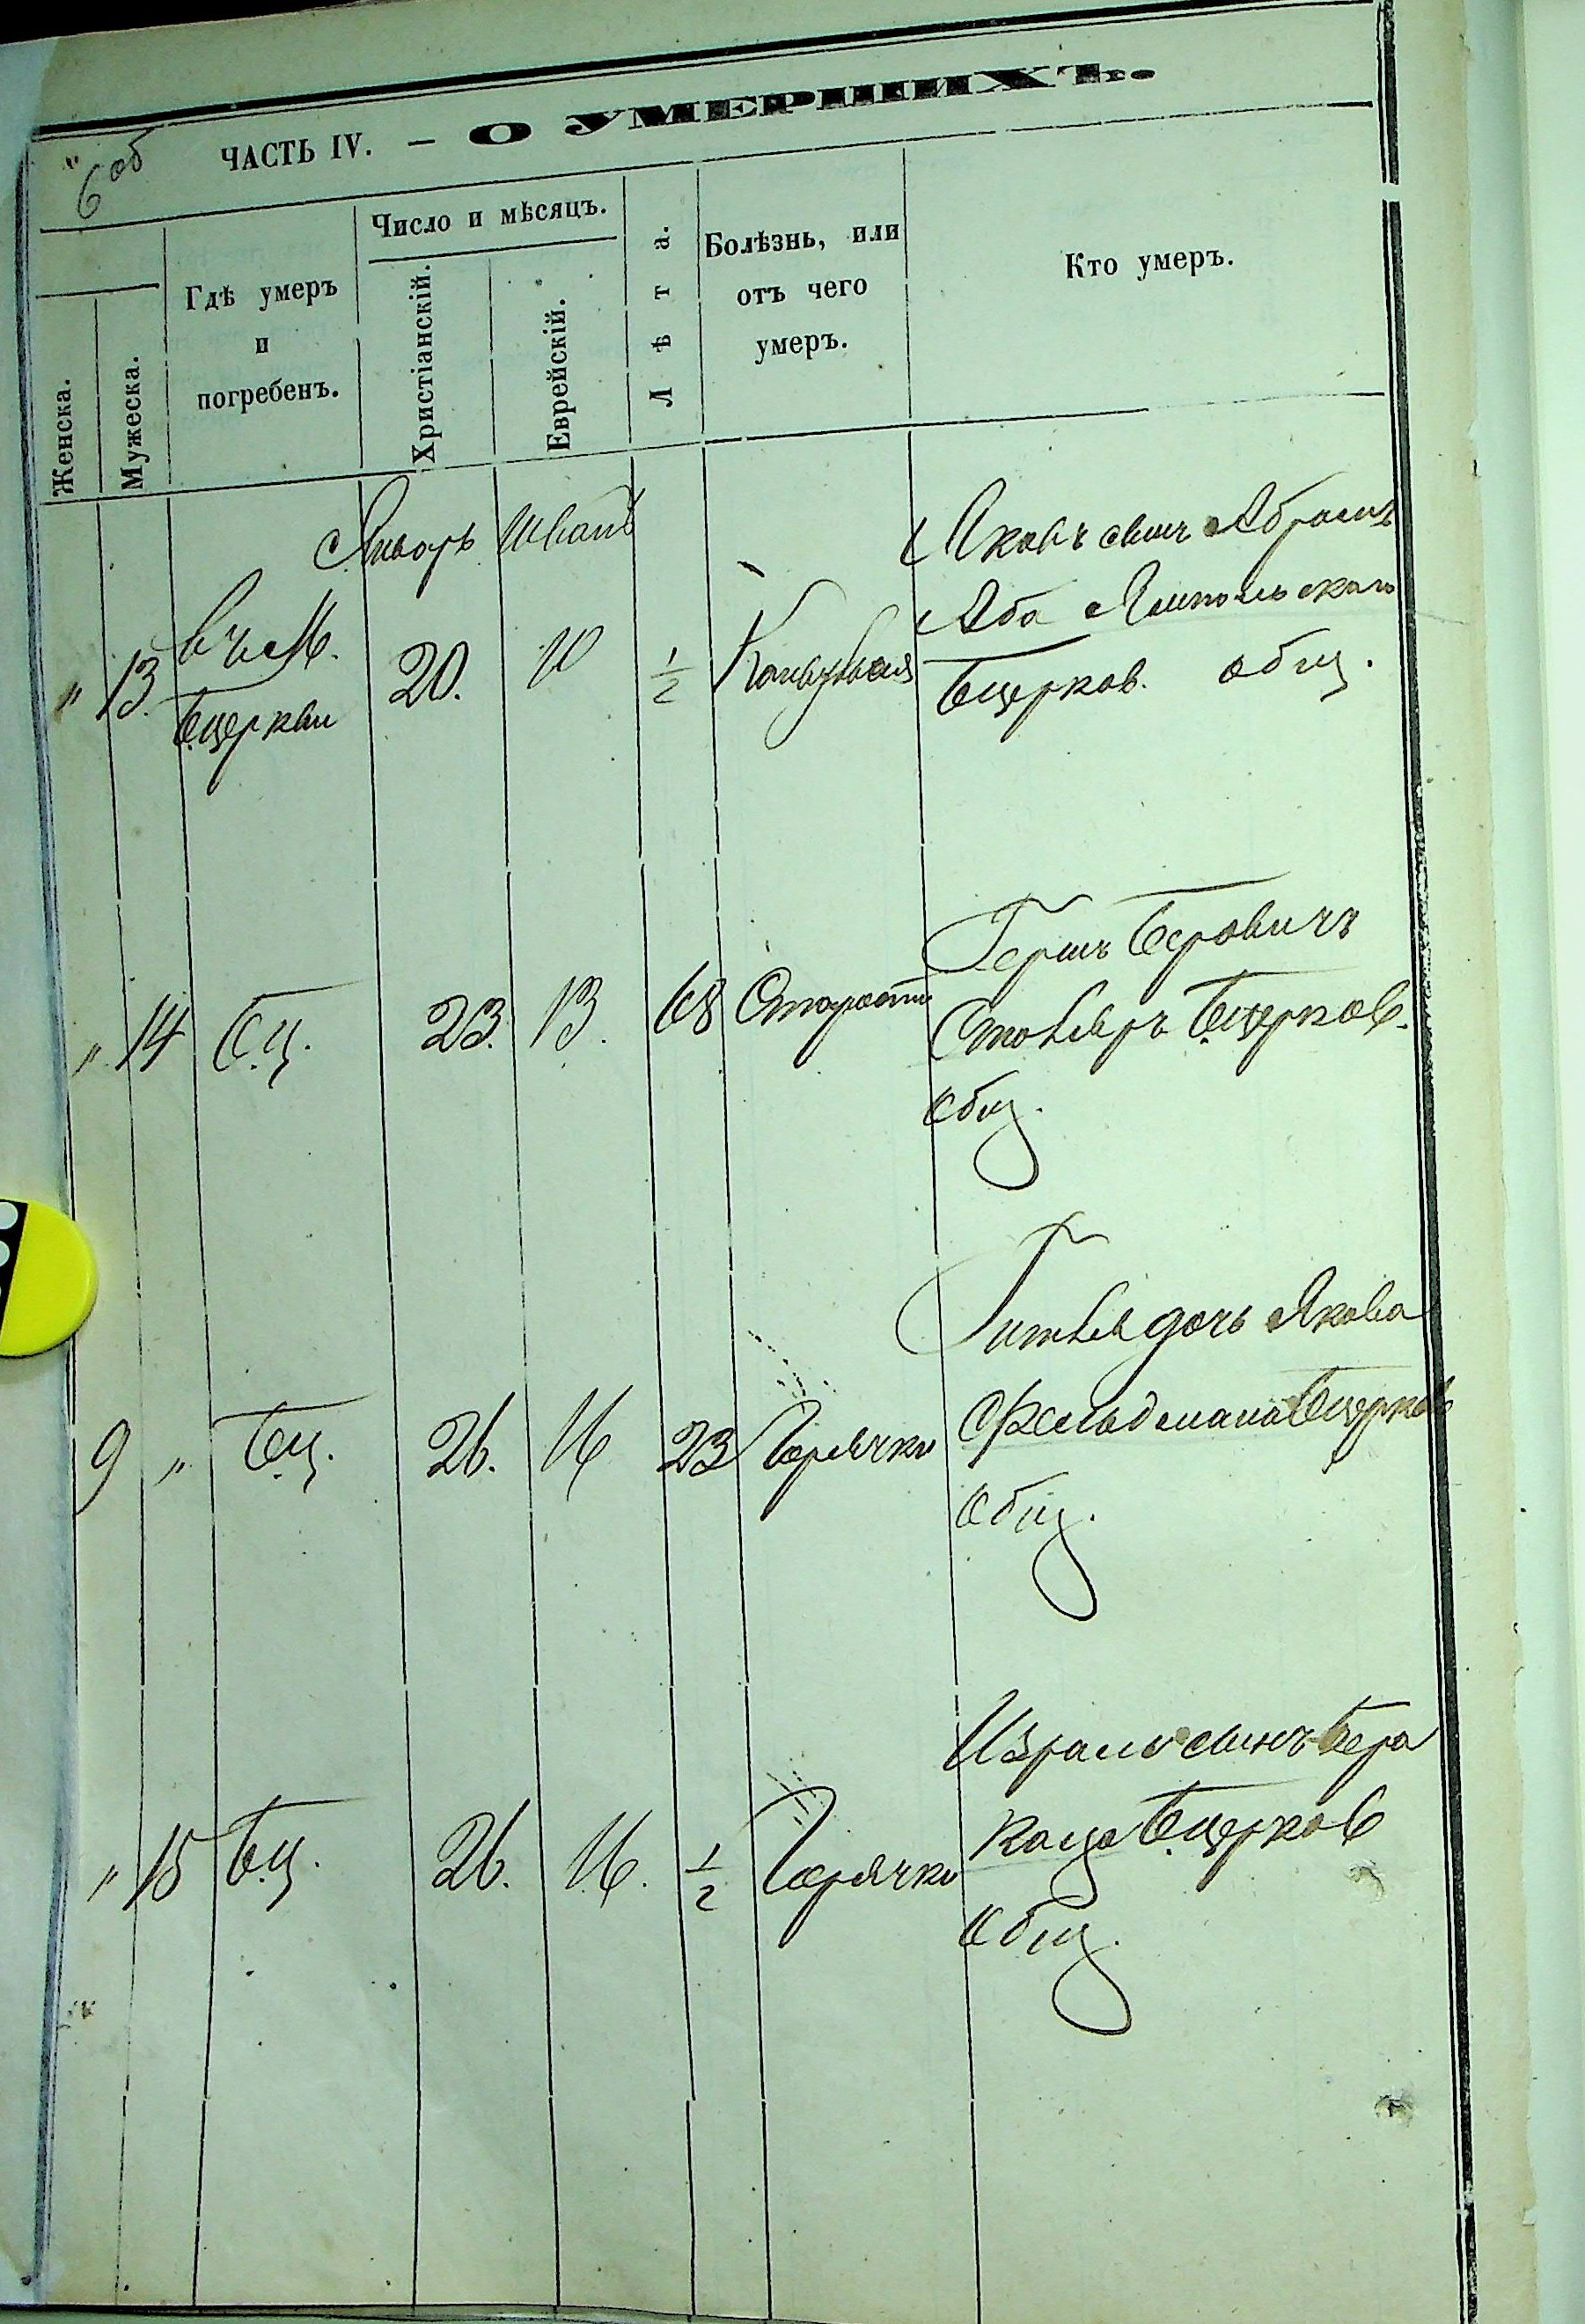 6 об
ЧАСТЬ IV. — О УМЕРШИХЪ.
Женска.
Мужеска.
Гдѣ умеръ
и
погребенъ.
Число и мѣсяцъ.
Христіанскій.
Еврейскій.
Лѣта.
Болѣзнь, или
отъ чего
умеръ.
Кто умеръ.
Январь Шватъ
" 13. въ М. Бцеркви 20. 10 1/2
Яковъ сынъ Абрамъ
Аба
Бцерков. общ.
" 14 Бц. 23. 13. 68 Старости
Гершъ Беровичъ
Столяръ Бцерков.
общ.
9 " Бц. 26. 16 23 Горячки
Гитля дочь Якова
Фельдмана Бцерков
общ.
" 15 Бц. 26. 16. 1/2 Горячки
Израиль сынъ Бера
Каца Бцерков
общ.